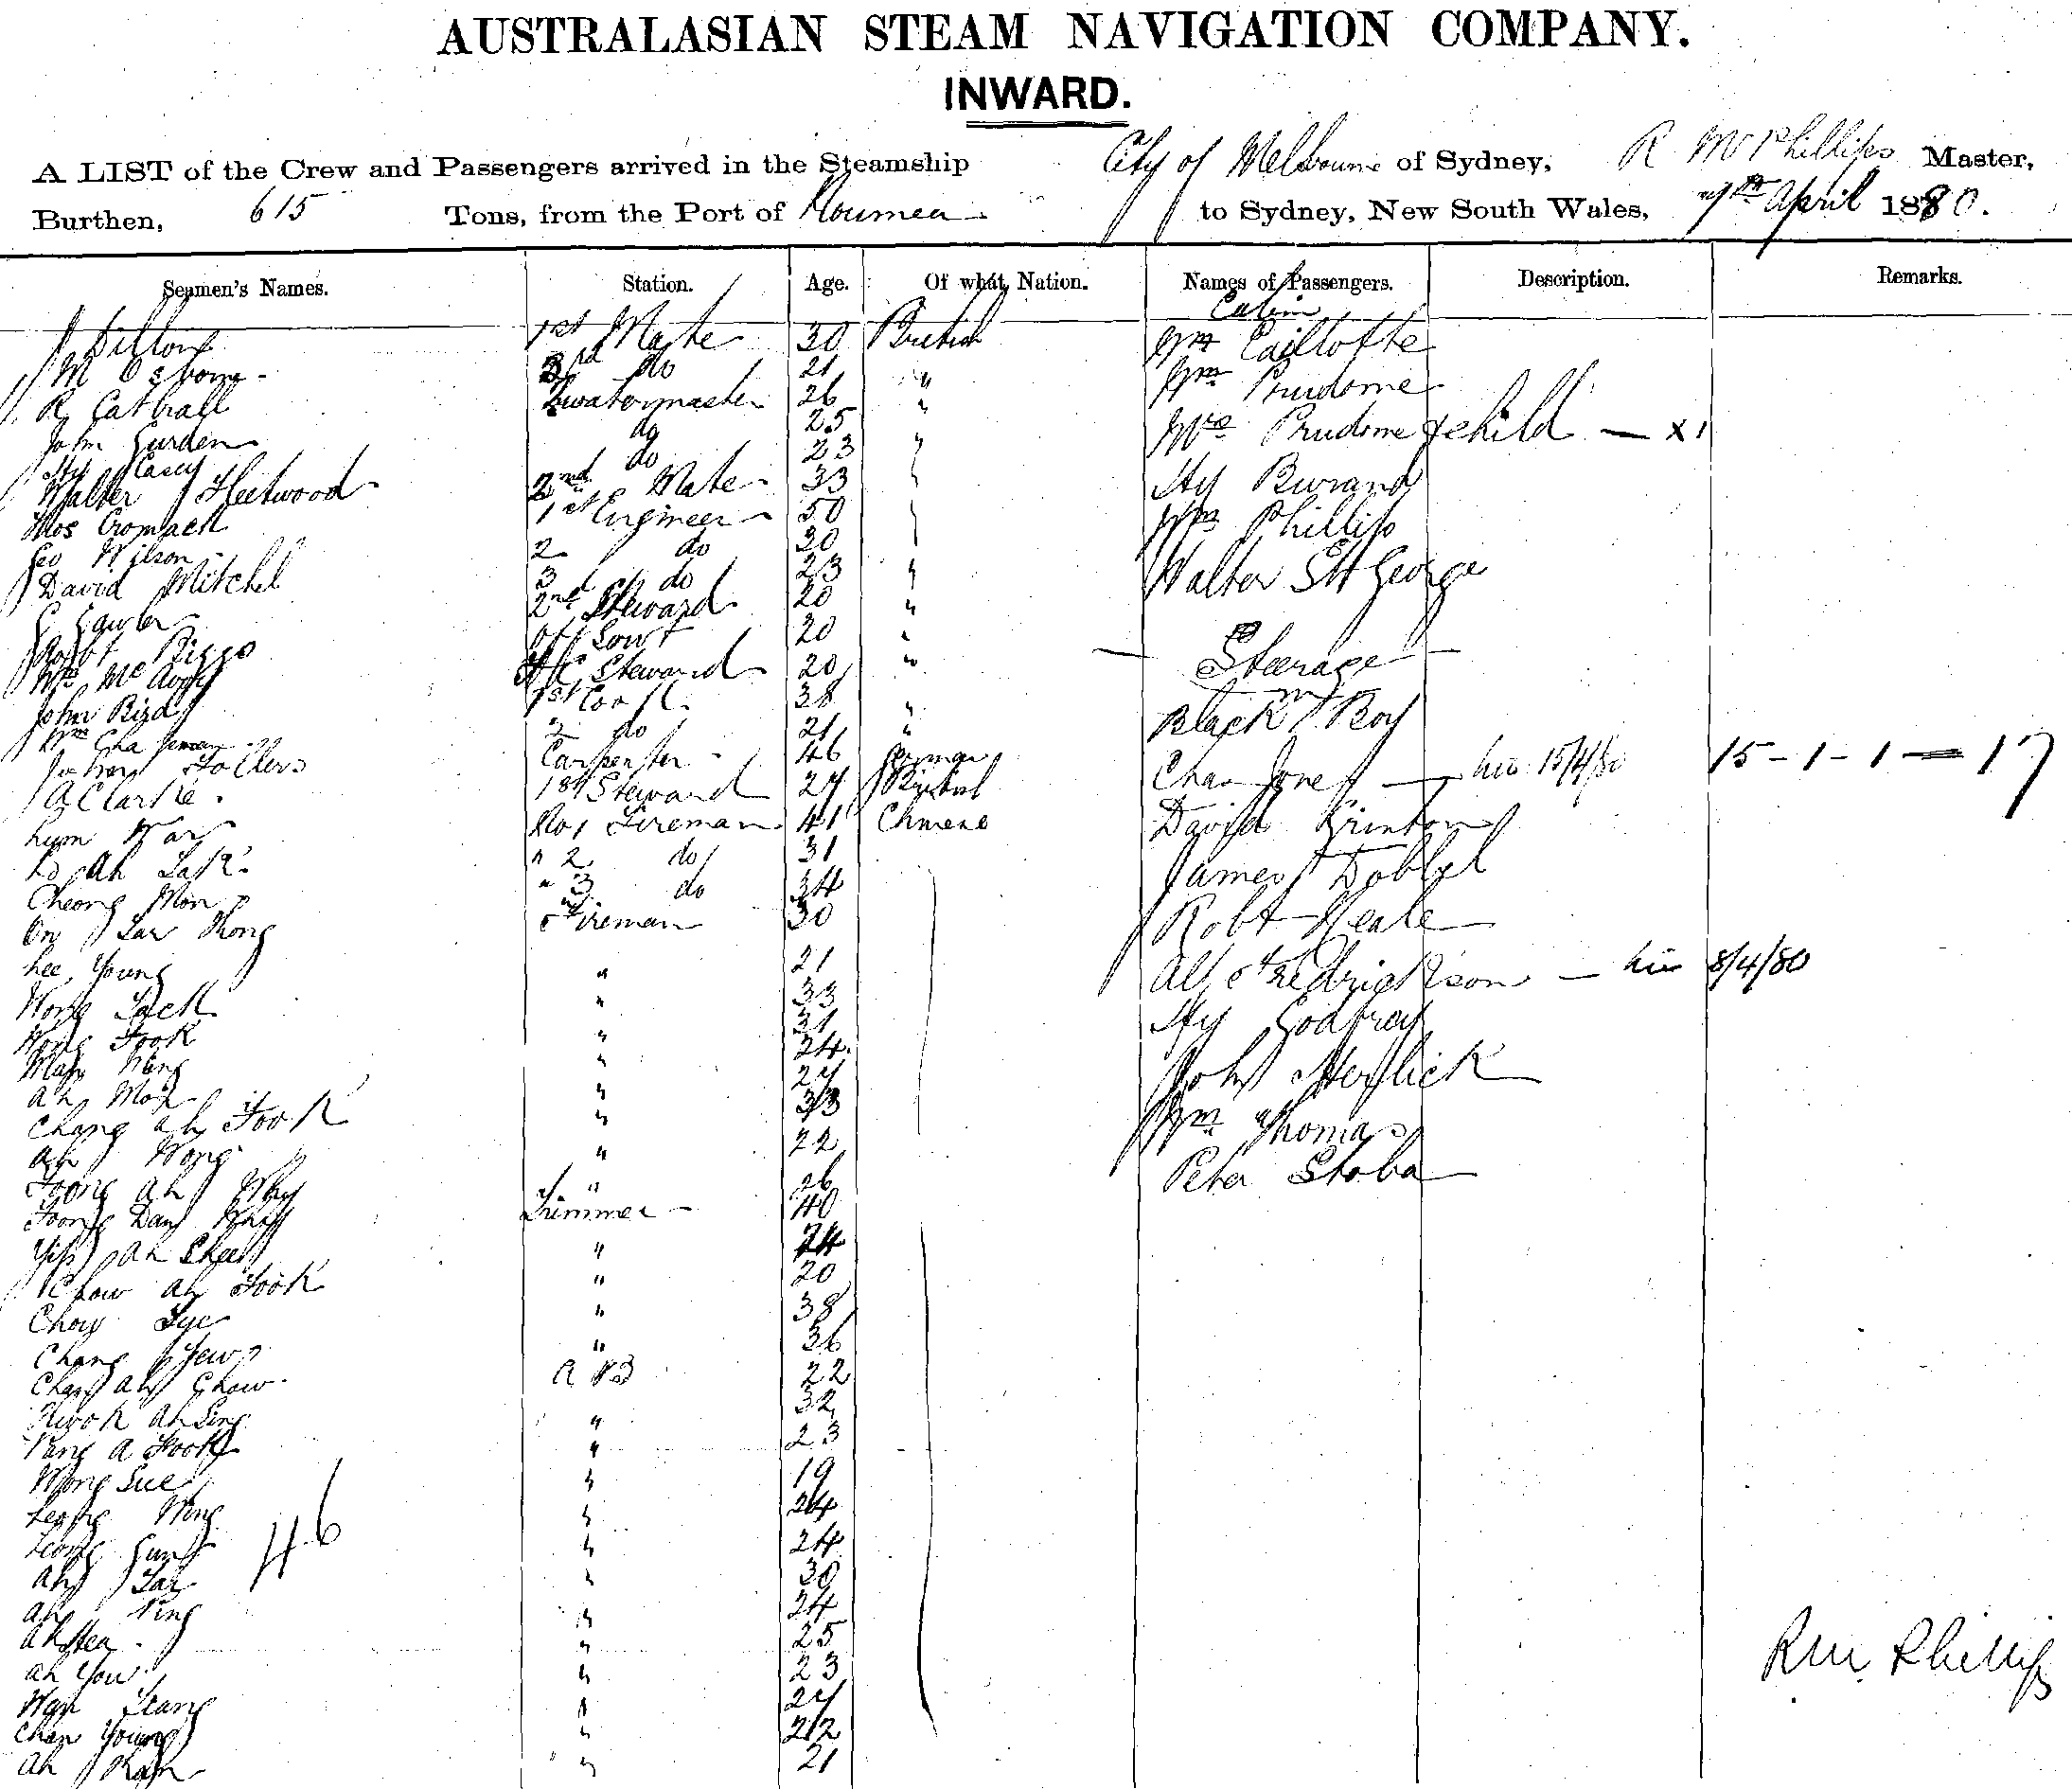 AUSTRALASIAN STEAM NAVIGATION COMPANY.
INWARD.
A LIST of the Crew and Passengers arrived in the Steamship City of Melbourne of Sydney, R M Phillips Master,
Burthen, 615 Tons, from the Port of Noumea to Sydney, New South Wales, 7th April 1880.
Seamen's Names. Station. Age. Of what Nation. Names of Passengers. Description. Remarks.
Cabin
J Dillon 1st Mate 30 British Wm Caillotte
M Osborne 3rd do 21 " Wm Prudome
R Cathall Quatermaster 26 " Mrs Prudome & child — x 1
John Gurden do 25
Hy Casey do 23 " Hy Burand
Walter Fleetwood 2nd Mate 33
Thos Cromack 1st Engineer 50 Wm Phillips
Geo Wilson 2 do 30
David Mitchel 3 do 23 " Walter St George
G Gawler 2nd Steward 20 "
Robt Riggs 20 " Steerage
Wm McAvoy Steward 20 "
John Bird 1st Cook 38 " Black Boy
Wm Chapman 2 do 21 "
Carpenter 46 German Chas Jones — 15/4/80 15 - 1 - 1 = 17
A Clarke 1st Steward 27 British
Lum War No 1 Fireman 41 Chinese David Brinton
Lo Ah Sak " 2 do 31 James
Cheong Mon " 3 do 34
On Tar Kong Fireman 30 Robt Neale
Lee Young " 21 Alf Fredrickson — 8/4/80
Wong Jack " 33 Hy Godfray
Wong Fook " 31
Mah Wing " 24 John
Ah Moy " 27
Chang Ah Fook " 33 Wm Thomas
Ah Wong " 22 Peter Stoba
Foong Ah Why " 26
Foong Day Trimmer 40
Yip Ah Shee " 24
Chow Ah Fook " 20
Choy Sye " 38
Chang Yew " 36
Chang Ah Chow A B 22
Kwok Ah Sing " 32
Pang A Fook " 23
Wong Sue " 19
Leong Wing " 24
Leong Gun " 24
46
Ah Tar " 30
Ah Ping " 24
Ah Hea " 25
Ah You " 23
R M Phillips
Wah Stang " 27
Chan Young " 22
Ah Kan " 21